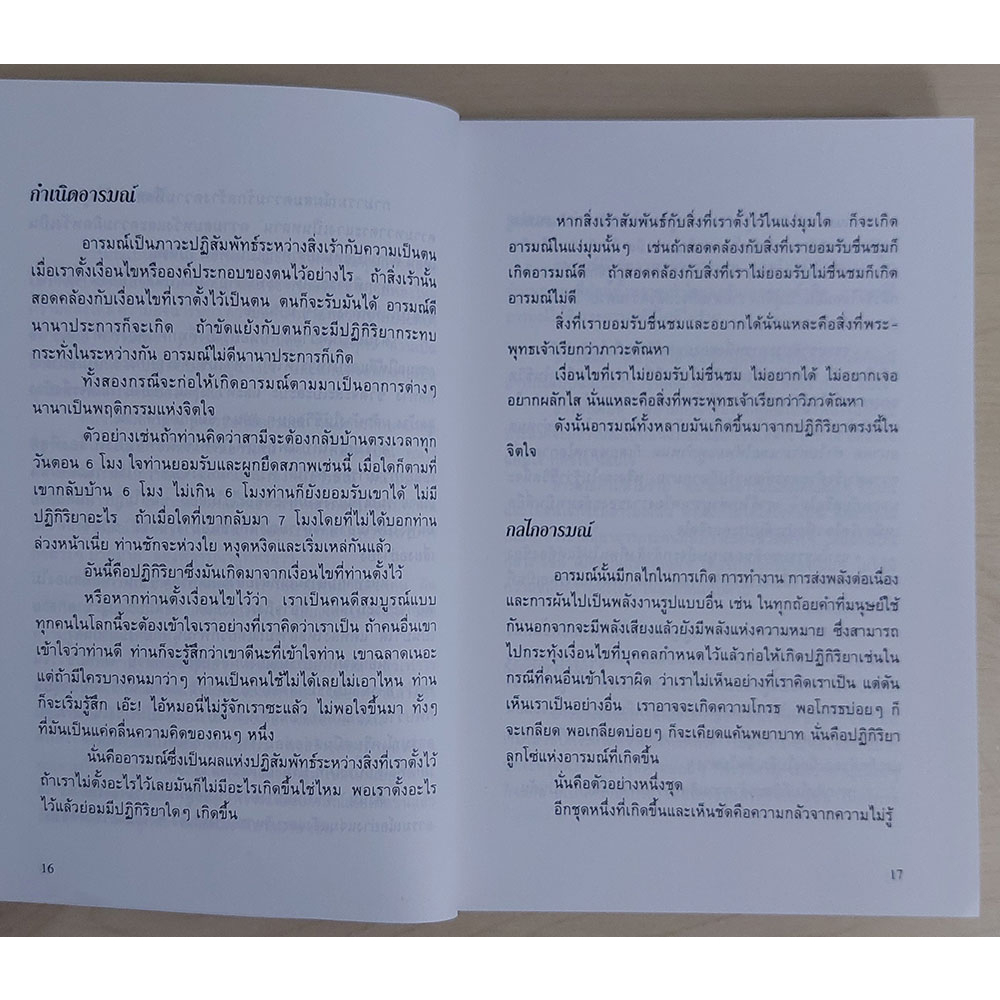 กำเนิดอารมณ์
อารมณ์เป็นภาวะปฏิสัมพัทธ์ระหว่างสิ่งเร้ากับความเป็นตน
เมื่อเราตั้งเงื่อนไขหรือองค์ประกอบของตนไว้อย่างไร ถ้าสิ่งเร้านั้น
สอดคล้องกับเงื่อนไขที่เราตั้งไว้เป็นตน ตนก็จะรับมันได้ อารมณ์ดี
นานาประการก็จะเกิด ถ้าขัดแย้งกับตนก็จะมีปฏิกิริยากระทบ
กระทั่งในระหว่างกัน อารมณ์ไม่ดีนานาประการก็เกิด
ทั้งสองกรณีจะก่อให้เกิดอารมณ์ตามมาเป็นอาการต่างๆ
นานาเป็นพฤติกรรมแห่งจิตใจ
ตัวอย่างเช่นถ้าท่านคิดว่าสามีจะต้องกลับบ้านตรงเวลาทุก
วันตอน 6 โมง ใจท่านยอมรับและผูกยึดสภาพเช่นนี้ เมื่อใดก็ตามที่
เขากลับบ้าน 6 โมง ไม่เกิน 6 โมงท่านก็ยังยอมรับเขาได้ ไม่มี
ปฏิกิริยาอะไร ถ้าเมื่อใดที่เขากลับมา 7 โมงโดยที่ไม่ได้บอกท่าน
ล่วงหน้าเนี่ย ท่านชักจะห่วงใย หงุดหงิดและเริ่มเหล่กันแล้ว
อันนี้คือปฏิกิริยาซึ่งมันเกิดมาจากเงื่อนไขที่ท่านตั้งไว้
หรือหากท่านตั้งเงื่อนไขไว้ว่า เราเป็นคนดีสมบูรณ์แบบ
ทุกคนในโลกนี้จะต้องเข้าใจเราอย่างที่เราคิดว่าเราเป็น ถ้าคนอื่นเขา
เข้าใจว่าท่านดี ท่านก็จะรู้สึกว่าเขาดีนะที่เข้าใจท่าน เขาฉลาดเนอะ
แต่ถ้ามีใครบางคนมาว่าๆ ท่านเป็นคนใช้ไม่ได้เลยไม่เอาไหน ท่าน
ก็จะเริ่มรู้สึก เอ๊ะ! ไอ้หมอนี่ไม่รู้จักเราซะแล้ว ไม่พอใจขึ้นมา ทั้งๆ
ที่มันเป็นแค่คลื่นความคิดของคนๆ หนึ่ง
นั่นคืออารมณ์ซึ่งเป็นผลแห่งปฏิสัมพัทธ์ระหว่างสิ่งที่เราตั้งไว้
ถ้าเราไม่ตั้งอะไรไว้เลยมันก็ไม่มีอะไรเกิดขึ้นใช่ไหม พอเราตั้งอะไร
ไว้แล้วย่อมมีปฏิกิริยาใดๆ เกิดขึ้น
16
หากสิ่งเร้าสัมพันธ์กับสิ่งที่เราตั้งไว้ในแง่มุมใด ก็จะเกิด
อารมณ์ในแง่มุมนั้นๆ เช่นถ้าสอดคล้องกับสิ่งที่เรายอมรับชื่นชมก็
เกิดอารมณ์ดี ถ้าสอดคล้องกับสิ่งที่เราไม่ยอมรับไม่ชื่นชมก็เกิด
อารมณ์ไม่ดี
สิ่งที่เรายอมรับชื่นชมและอยากได้นั่นแหละคือสิ่งที่พระ-
พุทธเจ้าเรียกว่าภาวะตัณหา
เงื่อนไขที่เราไม่ยอมรับไม่ชื่นชม ไม่อยากได้ ไม่อยากเจอ
อยากผลักไส นั่นแหละคือสิ่งที่พระพุทธเจ้าเรียกว่าวิภวตัณหา
ดังนั้นอารมณ์ทั้งหลายมันเกิดขึ้นมาจากปฏิกิริยาตรงนี้ใน
จิตใจ
กลไกอารมณ์
อารมณ์นั้นมีกลไกในการเกิด การทำงาน การส่งพลังต่อเนื่อง
และการผันไปเป็นพลังงานรูปแบบอื่น เช่น ในทุกถ้อยคำที่มนุษย์ใช้
กันนอกจากจะมีพลังเสียงแล้วยังมีพลังแห่งความหมาย ซึ่งสามารถ
ไปกระทุ้งเงื่อนไขที่บุคคลกำหนดไว้แล้วก่อให้เกิดปฏิกิริยาเช่นใน
กรณีที่คนอื่นเข้าใจเราผิด ว่าเราไม่เห็นอย่างที่เราคิดเราเป็น แต่ดัน
เห็นเราเป็นอย่างอื่น เราอาจจะเกิดความโกรธ พอโกรธบ่อยๆ ก็
จะเกลียด พอเกลียดบ่อยๆ ก็จะเคียดแค้นพยาบาท นั่นคือปฏิกิริยา
ลูกโซ่แห่งอารมณ์ที่เกิดขึ้น
นั่นคือตัวอย่างหนึ่งชุด
อีกชุดหนึ่งที่เกิดขึ้นและเห็นชัดคือความกลัวจากความไม่รู้
17